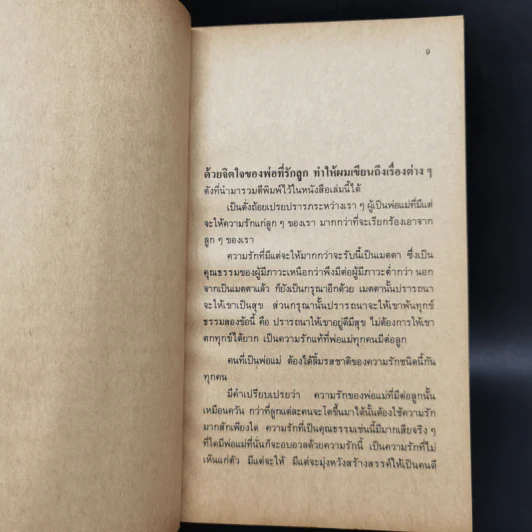 ๑
ด้วยจิตใจของพ่อที่รักลูก ทำให้ผมเขียนถึงเรื่องต่าง ๆ
ดังที่นำมารวมตีพิมพ์ไว้ในหนังสือเล่มนี้ได้
เป็นดั่งถ้อยเปรยปรารภระหว่างเรา ๆ ผู้เป็นพ่อแม่ที่มีแต่
จะให้ความรักแก่ลูก ๆ ของเรา มากกว่าที่จะเรียกร้องเอาจาก
ลูก ๆ ของเรา
ความรักที่มีแต่จะให้มากกว่าจะรับนี้เป็นเมตตา ซึ่งเป็น
คุณธรรมของผู้มีภาวะเหนือกว่าพึงมีต่อผู้มีภาวะต่ำกว่า นอก
จากเป็นเมตตาแล้ว ก็ยังเป็นกรุณาอีกด้วย เมตตานั้นปรารถนา
จะให้เขาเป็นสุข ส่วนกรุณานั้นปรารถนาจะให้เขาพ้นทุกข์
ธรรมสองข้อนี้ คือ ปรารถนาให้เขาอยู่ดีมีสุข ไม่ต้องการให้เขา
ตกทุกข์ได้ยาก เป็นความรักแท้ที่พ่อแม่ทุกคนมีต่อลูก
คนที่เป็นพ่อแม่ ต้องได้ลิ้มรสชาติของความรักชนิดนี้กัน
ทุกคน
มีคำเปรียบเปรยว่า ความรักของพ่อแม่ที่มีต่อลูกนั้น
เหมือนควัน กว่าที่ลูกแต่ละคนจะโตขึ้นมาได้นั้นต้องใช้ความรัก
มากสักเพียงใด ความรักที่เป็นคุณธรรมเช่นนี้มีมากเสียจริง ๆ
ที่ใดมีพ่อแม่ที่นั่นก็จะอบอวลด้วยความรักนี้ เป็นความรักที่ไม่
เห็นแก่ตัว มีแต่จะให้ มีแต่จะมุ่งหวังสร้างสรรค์ให้เป็นคนดี